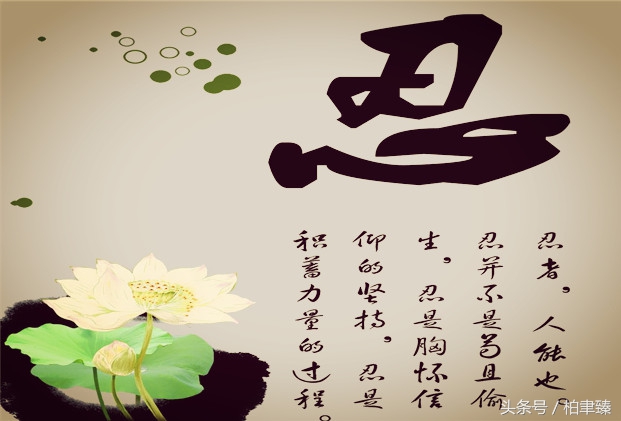 忍
忍者，人能也。
忍并不是苟且偷
生，忍是胸怀信
仰的坚持，忍是
积蓄力量的过程。
头条号／柏聿臻